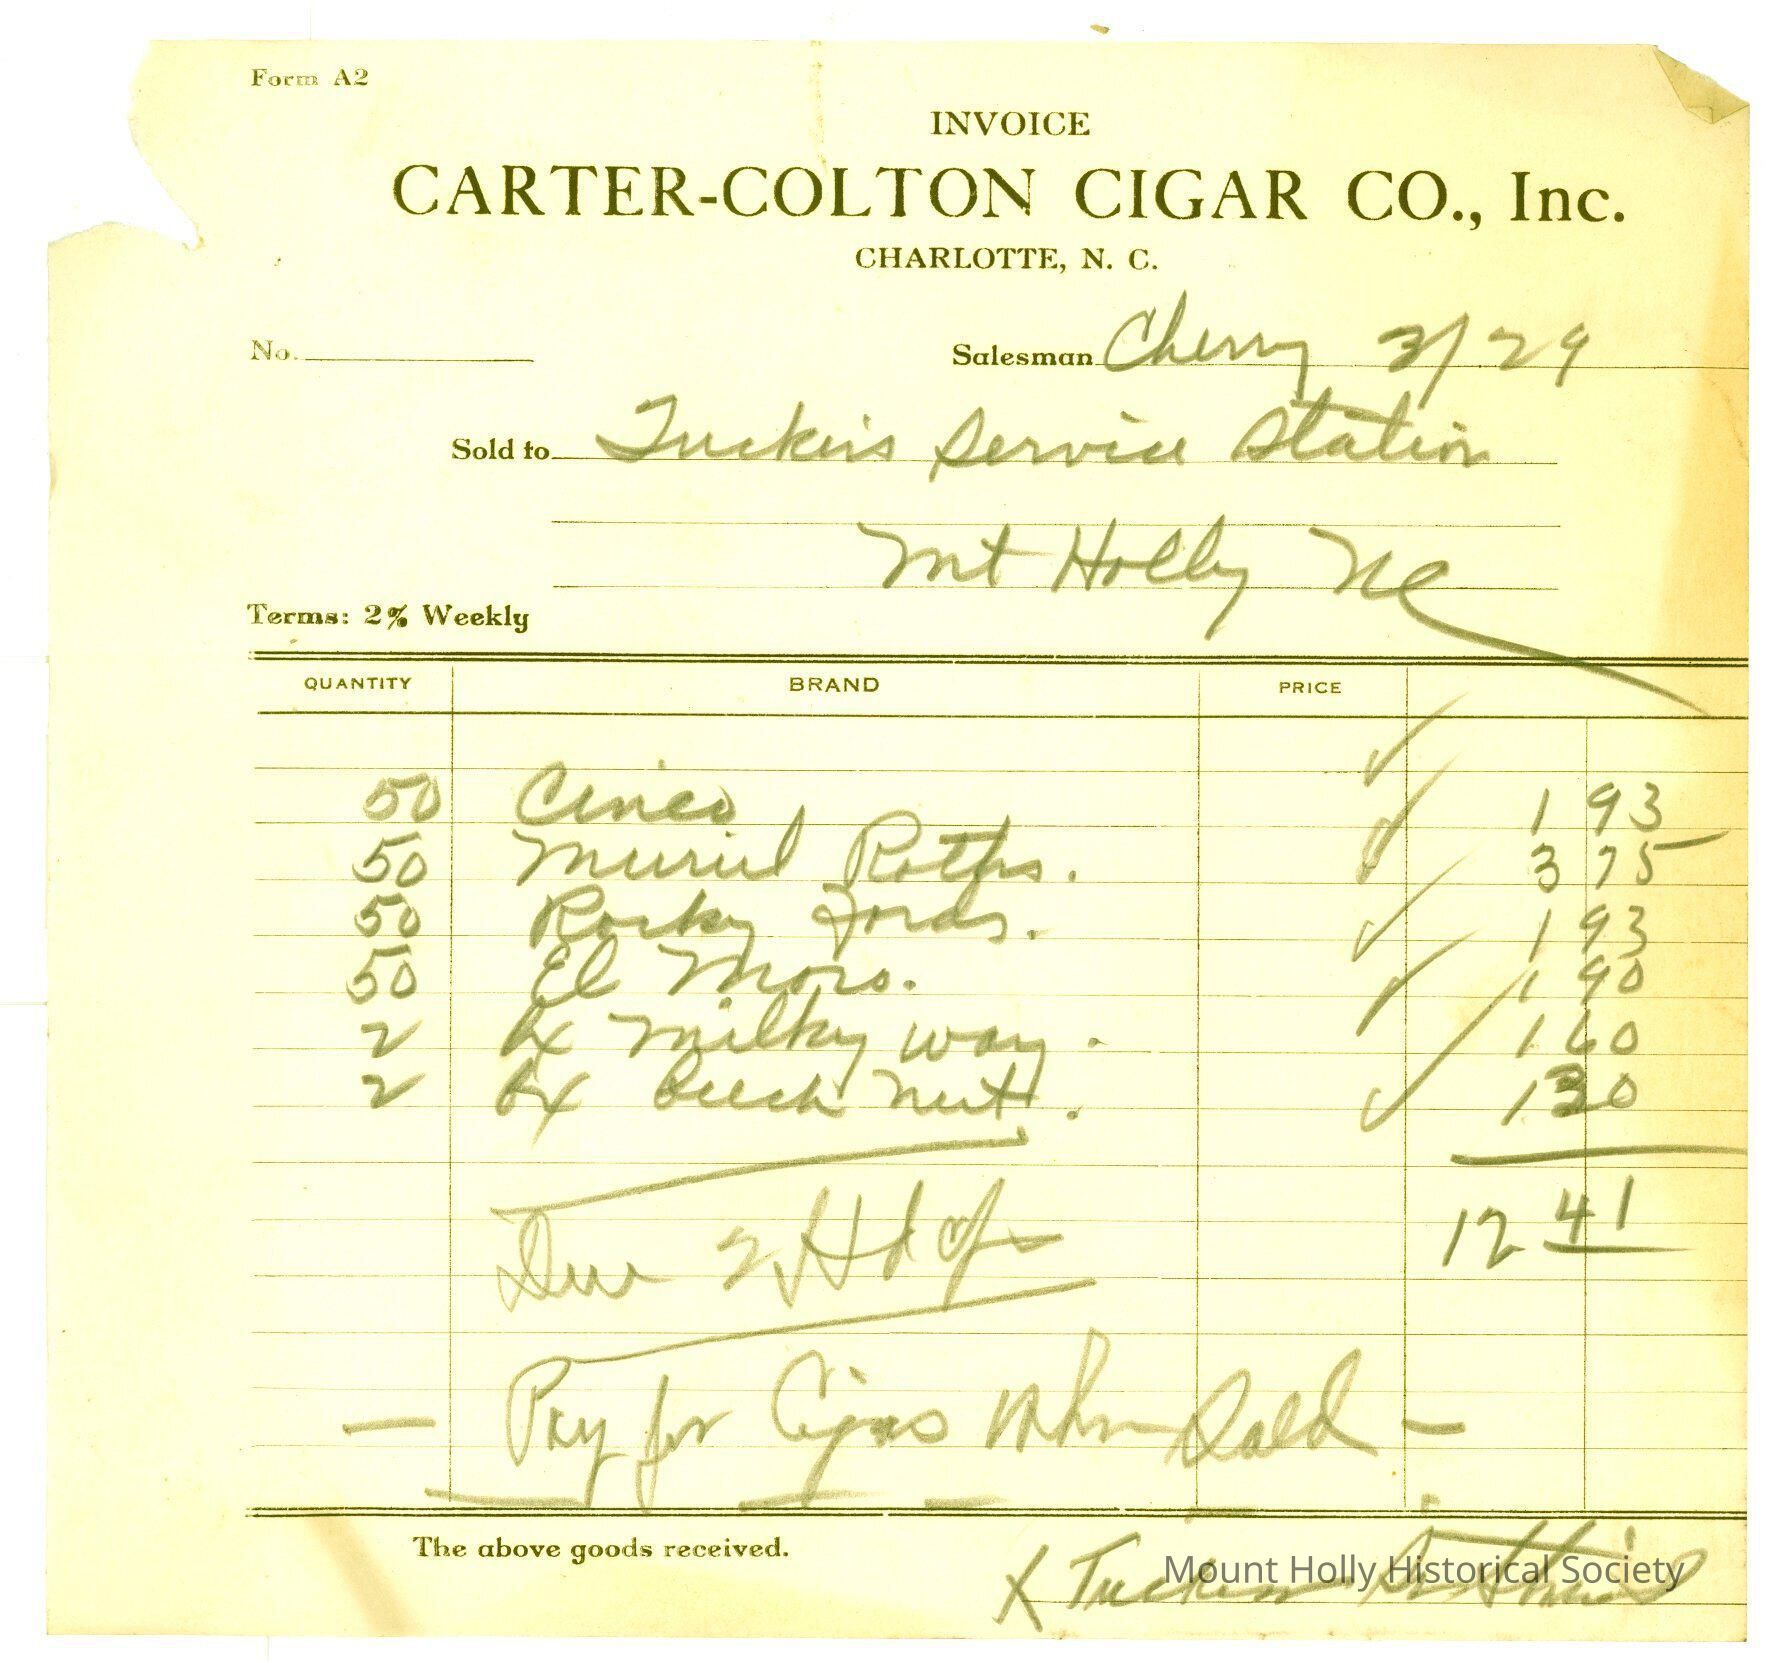 Form A2
INVOICE
CARTER-COLTON CIGAR CO., Inc.
CHARLOTTE, N. C.
No. Salesman Cherry 3/29
Sold to Tucker's Service Station
Mt Holly NC
Terms: 2% Weekly
QUANTITY BRAND PRICE
50 Cinco 1 93
50 Muriel Roths. 3 75
50 Rocky Fords. 1 93
50 El Moro. 1 90
2 bx Milky way. 1 60
2 bx Beech nut. 1 30
12 41
Due 2
Pay for Cigars When Sold
The above goods received.
X Tuckers
Mount Holly Historical Society